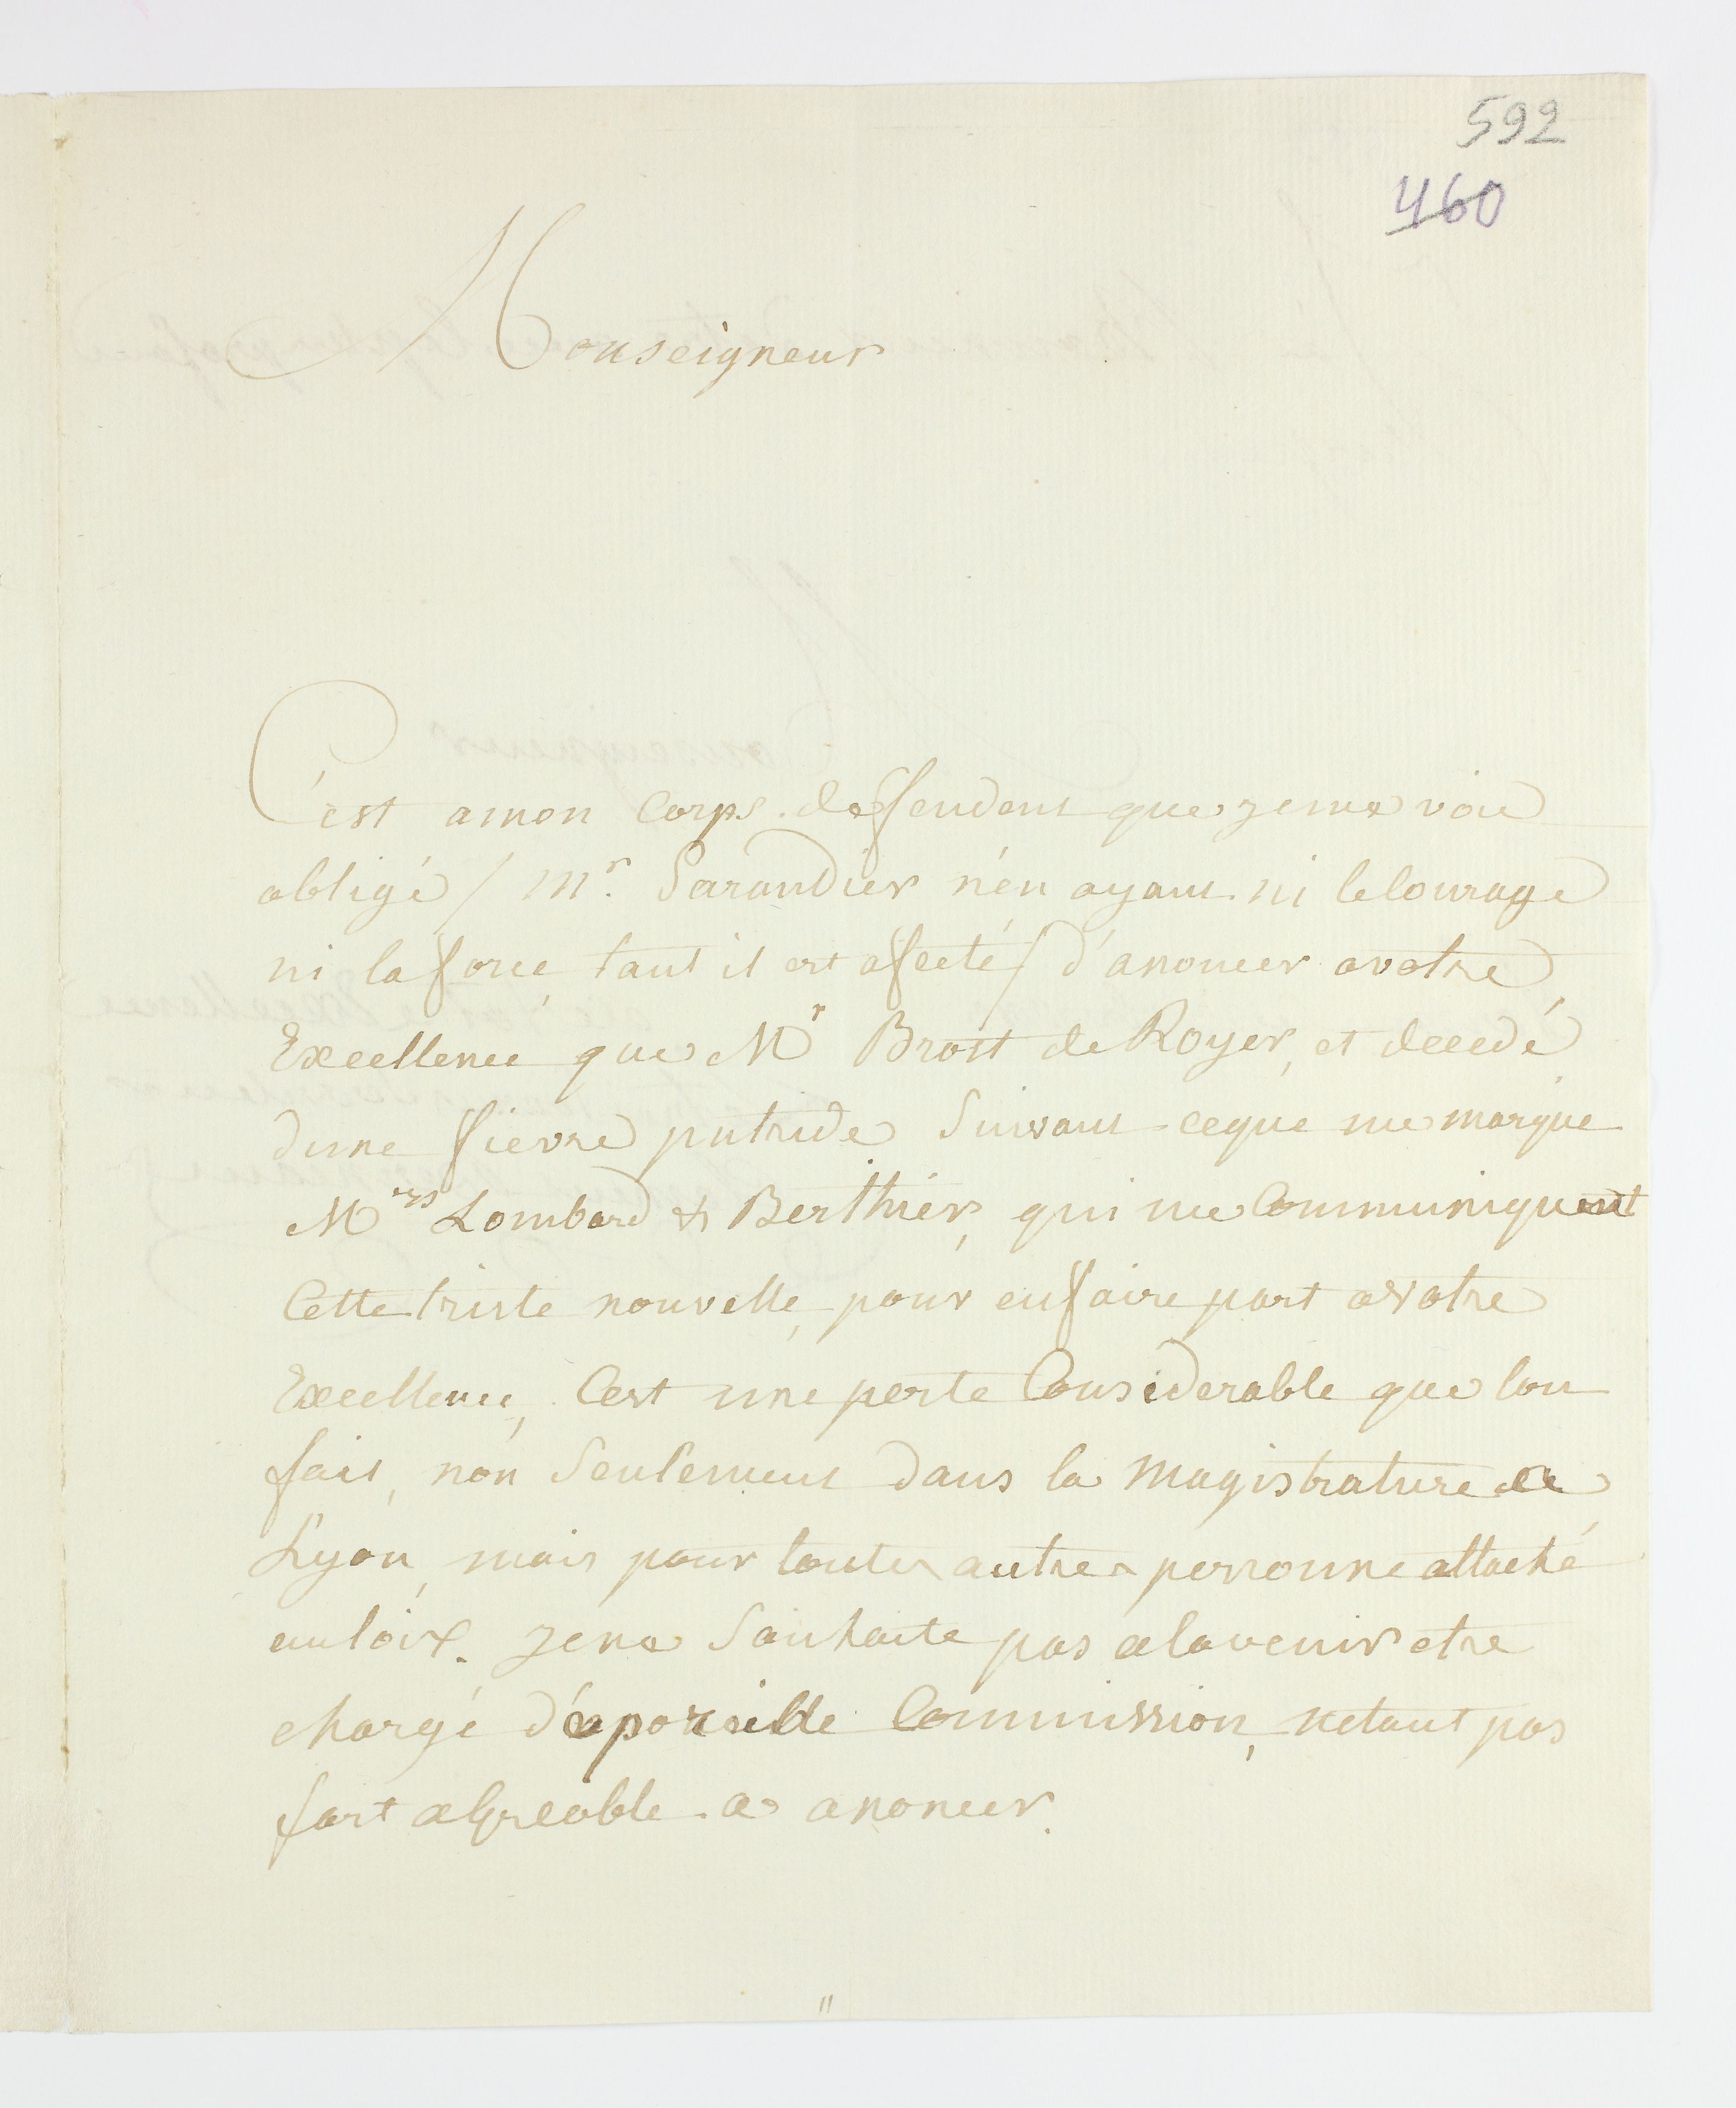 592
460
Monseigneur
C'est amon Corps deffendent que jeme voie
obligé / mr. Sarandier n'en ayant ni leCourage
ni la force, tant il est afecté / d'anoncer avotre
Excellence que Mr Brost de Royer, et decedé
dune fievre putride Suivant ceque me marque
Mrs Lombard & Berthier, qui me Communiquent
Cette triste nouvelle, pour enfaire part avotre
Excellence, Cest une perte Considerable que lon
fait, non Seulement dans la Magistrature de
Lyon, mais pour toutes autres personne attaché
au loix. jene Souhaite pas alavenir etre
chargé d'apareille Commission, netant pas
fort agreable a anoncer.